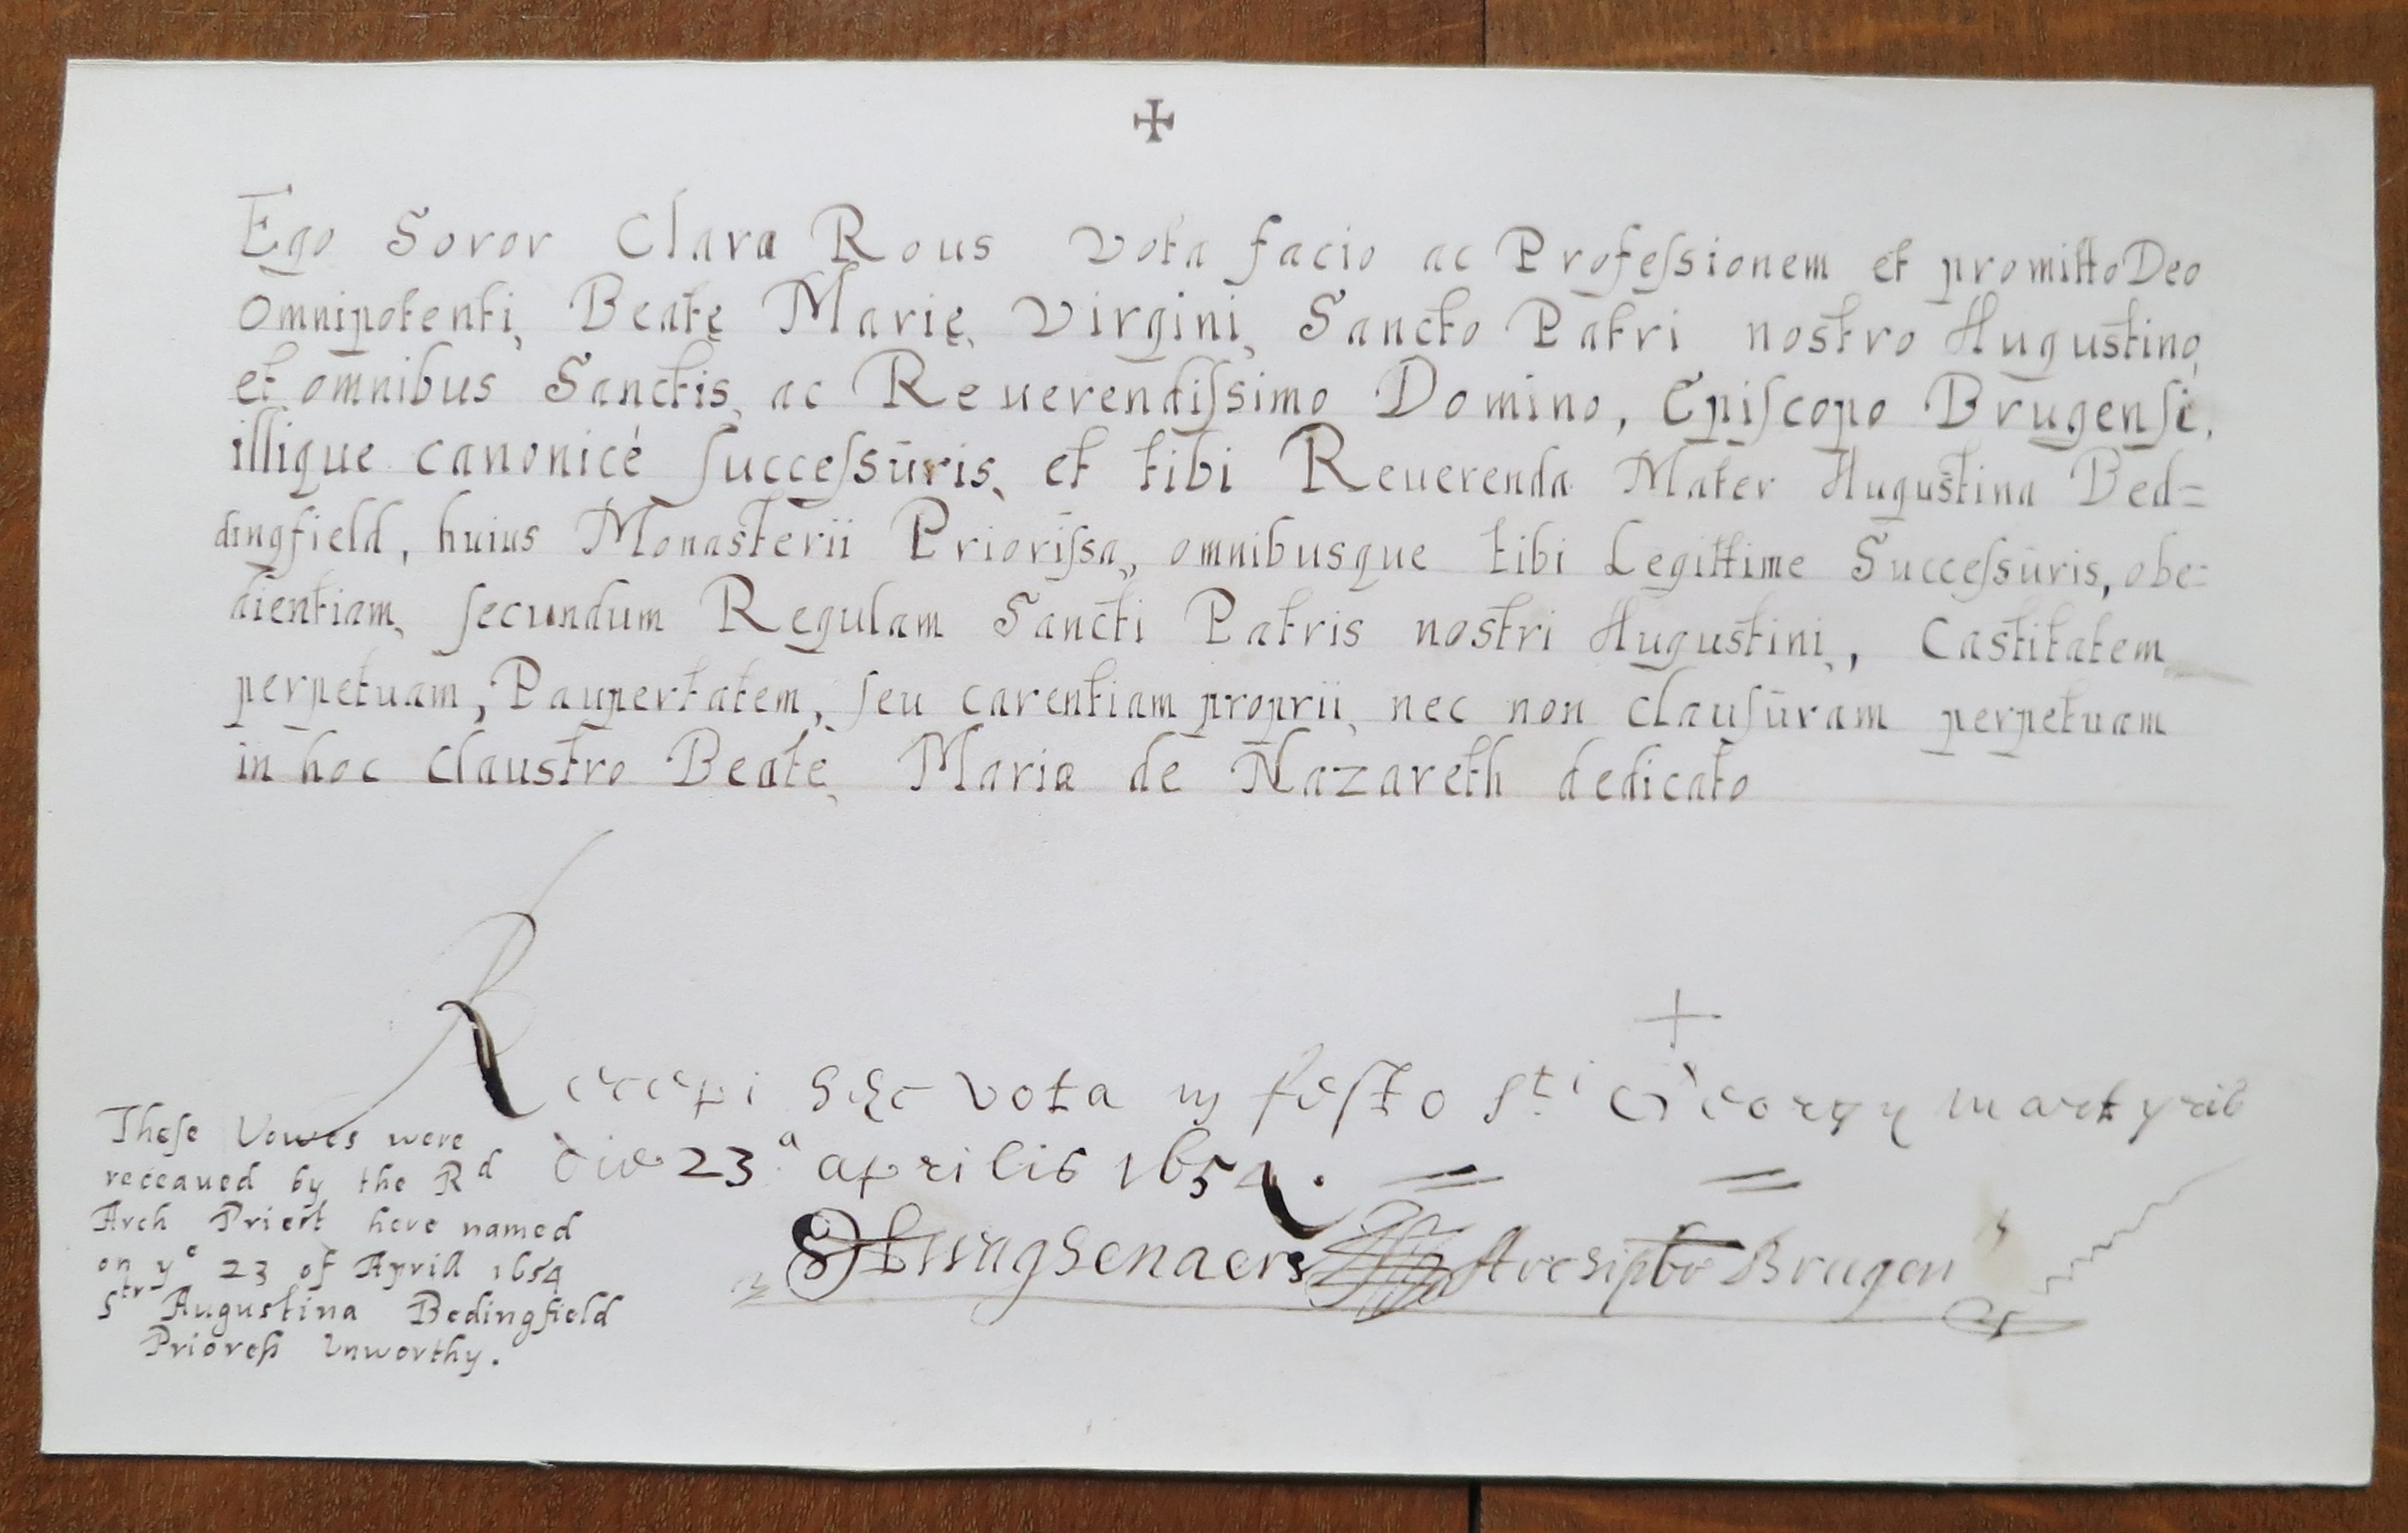 ✠
Ego Soror Clara Rous Vota facio ac Profeſsionem et promitto Deo
Omnipotenti, Beatę Marię, Virgini, Sancto Patri nostro Augustino,
et omnibus Sanctis, ac Reuerendiſsimo Domino, Epiſcopo Brugenſi,
illique canonicé ſucceſsūris, et tibi Reuerenda Mater Augustina Bed=
dingfield, huius Monasterii Prioriſsa, omnibusque tibi Legittime Succeſsūris, obe=
dientiam, ſecundum Regulam Sancti Patris nostri Augustini, Castitatem
perpetuam, Paupertatem, ſeu carentiam proprii, nec non clauſūram perpetuam
in hoc claustro Beatę Maria de Nazareth dedicato
+
Recepi hęc vota in feſto Sti Georgy martyris
die 23.a aprilis 1654.
Archipbr Brugen
Theſe Vowes were
receaued by the Rd
Arch Priest here named
on ye 23 of April 1654
Str Augustina Bedingfield
Prioreſs Unworthy.